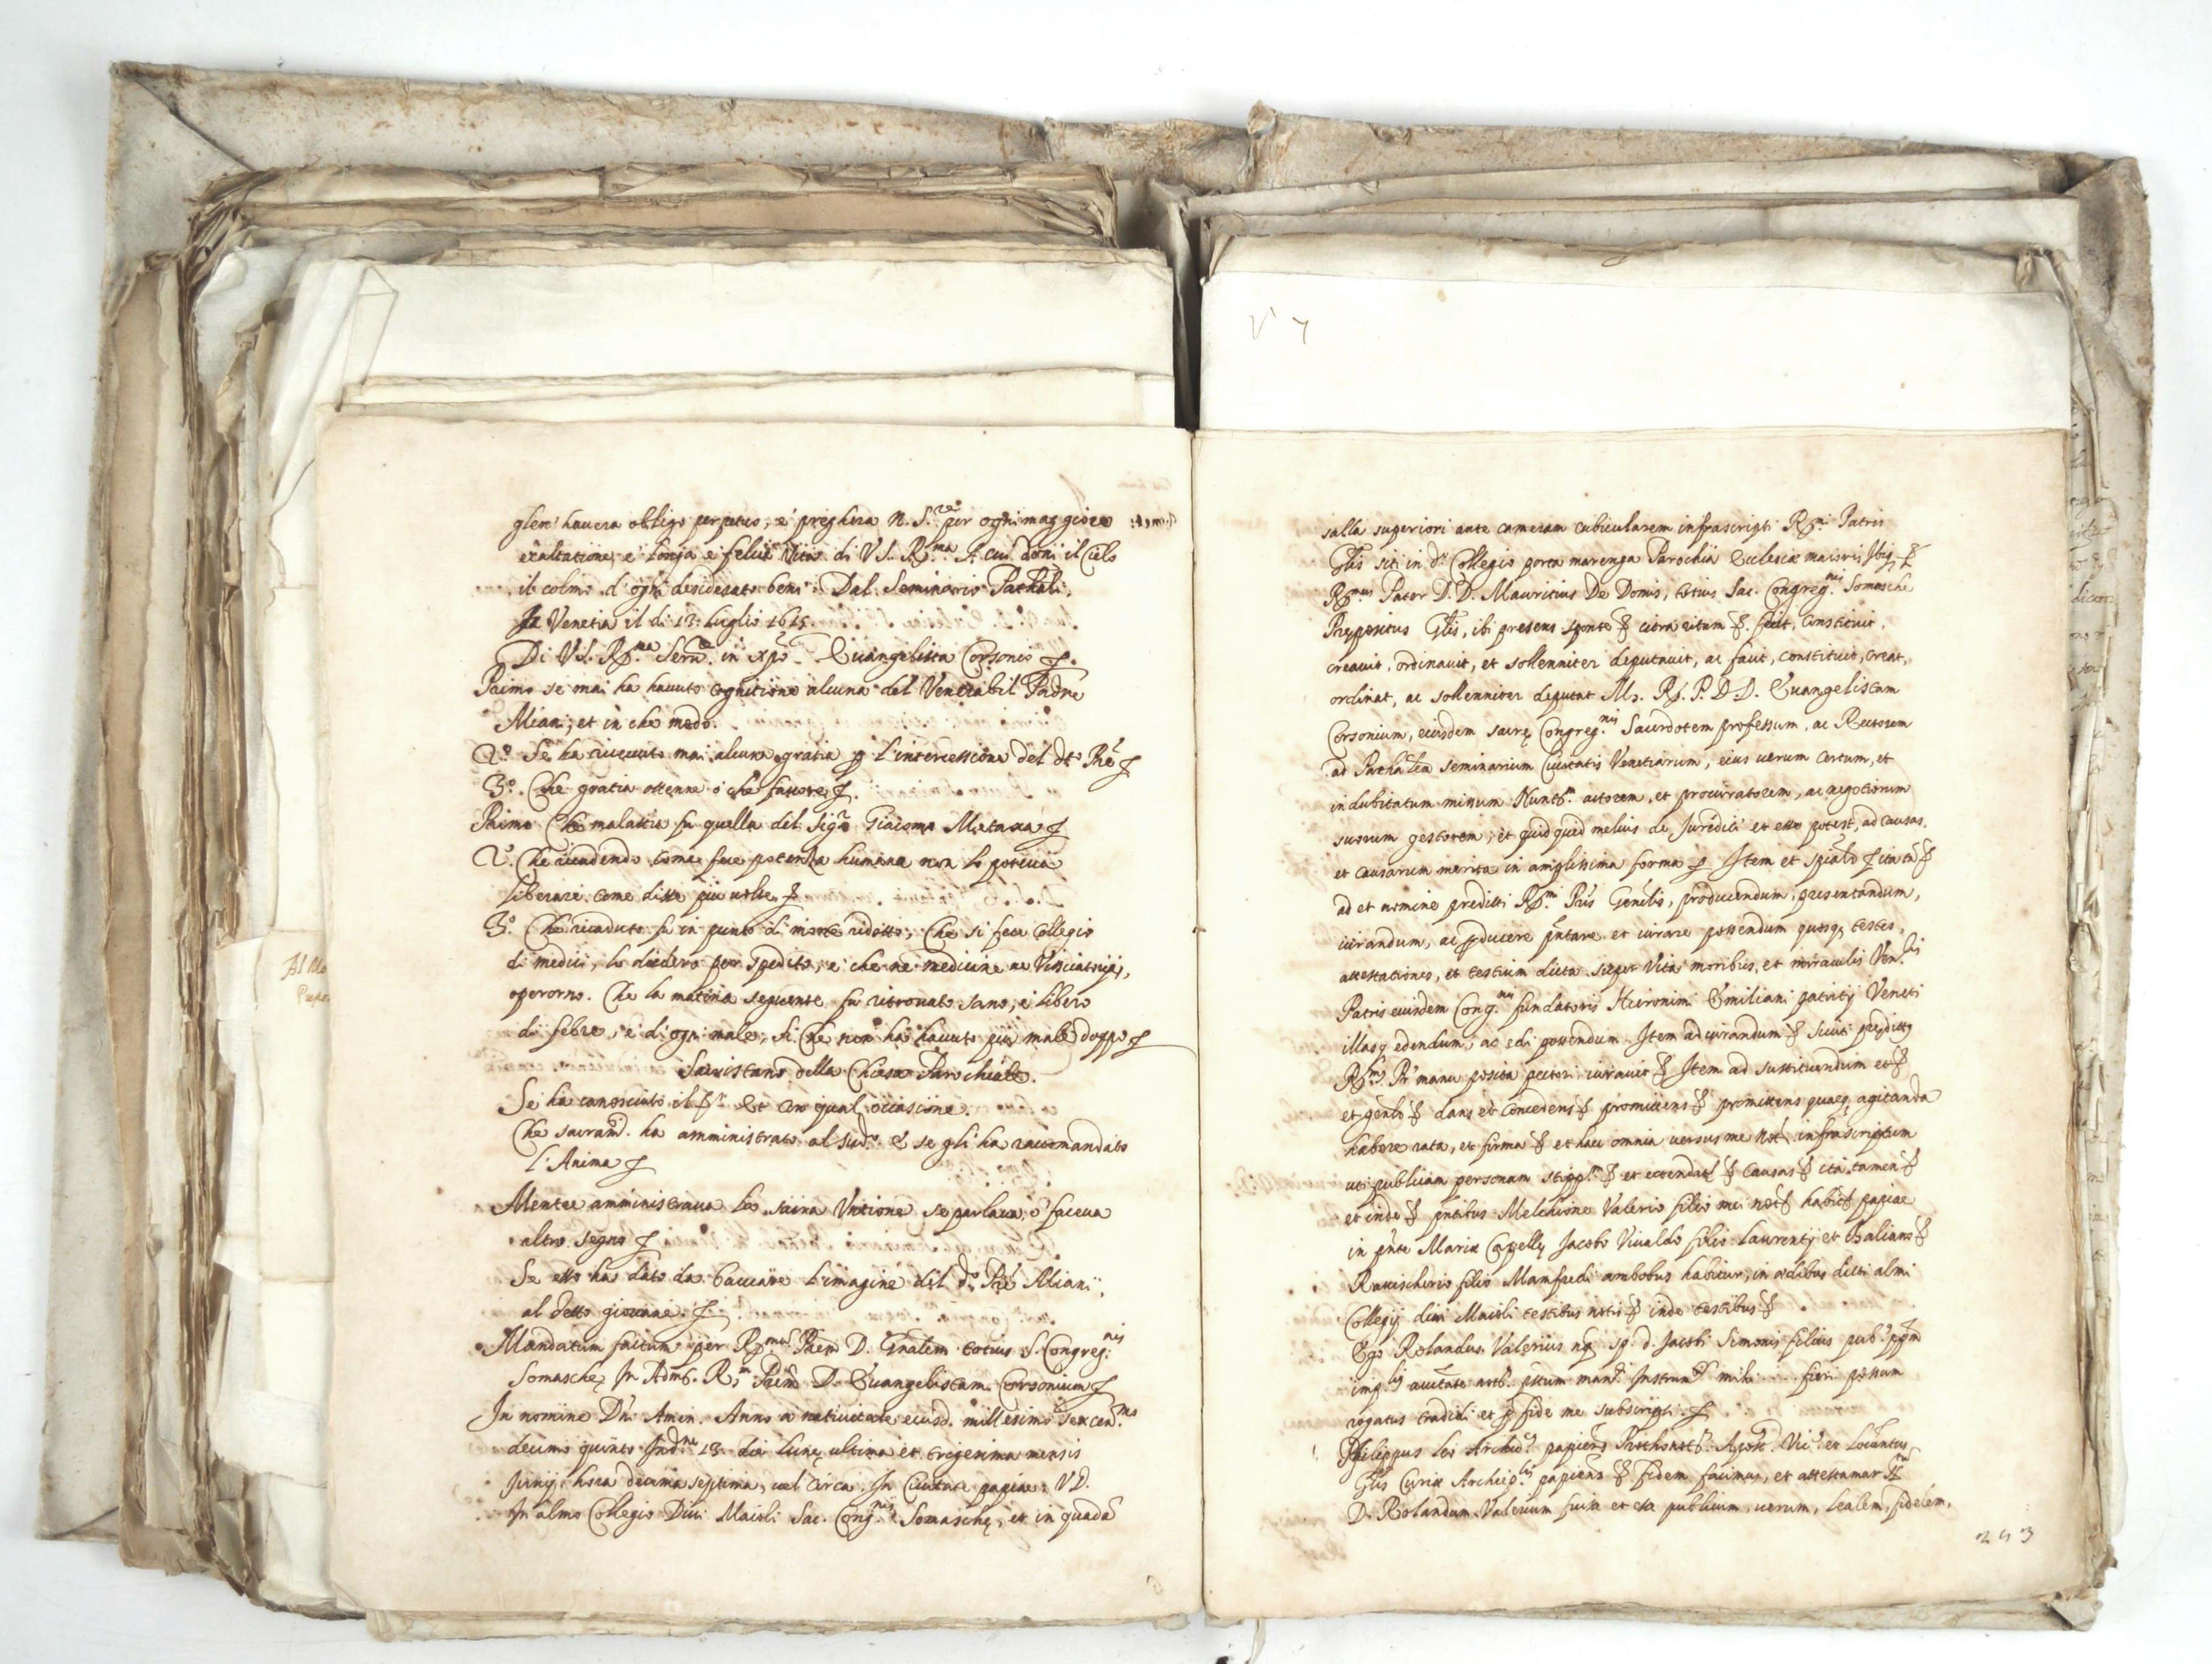 glen' hauera obligo perpetuo, e' preghera N. S.re per ogni maggiore
exaltatione, e longa e felice Vita di V.S. R.ma A cui doni il Cielo
il colmo d'ogni desiderato bene. Dal Seminario Patriali
Venetia il di 13 Luglio 1615.
Di V.S. R.ma Seru.re in xpo Euangelista Corsonio
Primo se mai ha hauuto cognitione alcuna del Venerabil Padre
Miani, et in che modo.
2.o Se ha riceuuto mai alcuna gratia p l'intercessione del do Pre
3.o Che gratia ottenne o che fauore
Primo Che malattia fu quella del Sigr Giacomo Metaxa
2. Che ricadendo come fece potenza humana non lo poteua
liberare come disse piu uolte
3.o Che ricaduto fu in punto di morte ridotto, Che si fece Collegio
di medici, lo diedero per spedito, e che ne medicine ne
operorno. Che la matina seguente fu ritrouato sano, e libero
di febre, e d'ogni male, si Che non ha hauuto piu male doppo
Sacristano della Chiesa Parochiale.
Se ha conosciuto il et con qual occasione.
Che sacram. ha amministrato al sud.o e se gli ha raccomandato
l'Anima
Mentre amministraua la sacra Vntione se parlaua o faceua
altro segno
Se esso ha dato da bacciare l'imagine del do Pre Miani
al detto giouane.
Mandatum factum per R.mum Prem D. Gnalem totius S. Congreg.nis
Somaschę In Adm. R. Prem D. Euangelistam Corsonium
In nomine Dni Amen. Anno a natiuitate eiusd. millesimo sexcen.mo
decimo quinto Ind.ne 13 die lunę ultima et trigesima mensis
Junij hora decima septima, uel circa. In Ciuitate papiae: VD.
In almo Collegio Diui Maioli Sac. Cong.nis Somaschę, et in quadā
V 7
salla superiori ante cameram cubicularem infrascripti R.mi Patris
Glis siti in do Collegio porta marenga Parochia Ecclesiae maioris Ibiq
R.mus Pater D.D. Mauritius De Domis, totius Sac. Congreg.nis Somaschę
Prępositus Glis, ibi presens sponte citra ritum fecit, Constituit,
creauit, ordinauit, et sollenniter deputauit, ac facit, constituit, creat,
ordinat, ac sollenniter deputat M. R. P. D. D. Euangelistam
Corsonium, eiusdem sacrę Congreg.nis Sacerdotem professum, ac Rectorem
ad Patriale Seminarium Ciuitatis Venetiarum, eius uerum certum, et
indubitatum missum Nunt. actorem, et procuratorem, ac negotiorum
suorum gestorem, et quidquid melius de Juredici et esse potest, ad causas
et causarum merita in amplissima forma Item et spialr ita ta
ad et nomine predicti R.mi Pris Genēlis, producendum, presentandum,
iurandum, ac producere pntare et iurare possendum quosq testes,
attestationes, et testium dicta super Vita moribus, et miraculis Ven.lis
Patris eiusdem Cong.nis fundatoris Hieronimi Emiliani patritij Veneti
illasq edendum, ac edi possendum Item ad iurandum sicuti predittq
R.mus Pr manu posita pectori iurauit Item ad sustituendum et
et genlr dans et concedens promittens promittens quaeq agitanda
habere rata, et firma et haec omnia uersus me not infrascriptum
uti publicam personam stipp. et causas ita tamen
et inde pntibus Melchione Valerio filio mei not habit papiae
in pnte Mariae Capellę Jacobo Viualdo filio Laurentij et Baliano
filio Manfredi ambobus habitur, in aedibus dicti almi
Collegij diui Maioli testibus notis inde testibus
Ego Rolandus Valerius nq sp. d. Jacobi Simonis filius pub. ppm
imp.li auctate not. pntum mand. Instrum mihi fieri possum
rogatus tradidi et p fide me subscripsi.
Philippus leo Archid. papiens Prothonot. Apost. Vic. et Locumtus
Glis Curiae Archiep.lis papiens fidem facimus, et attestamur
D. Rolandum Valerium fuisse et esse publicum, uerum, lealem, fidelem,
243